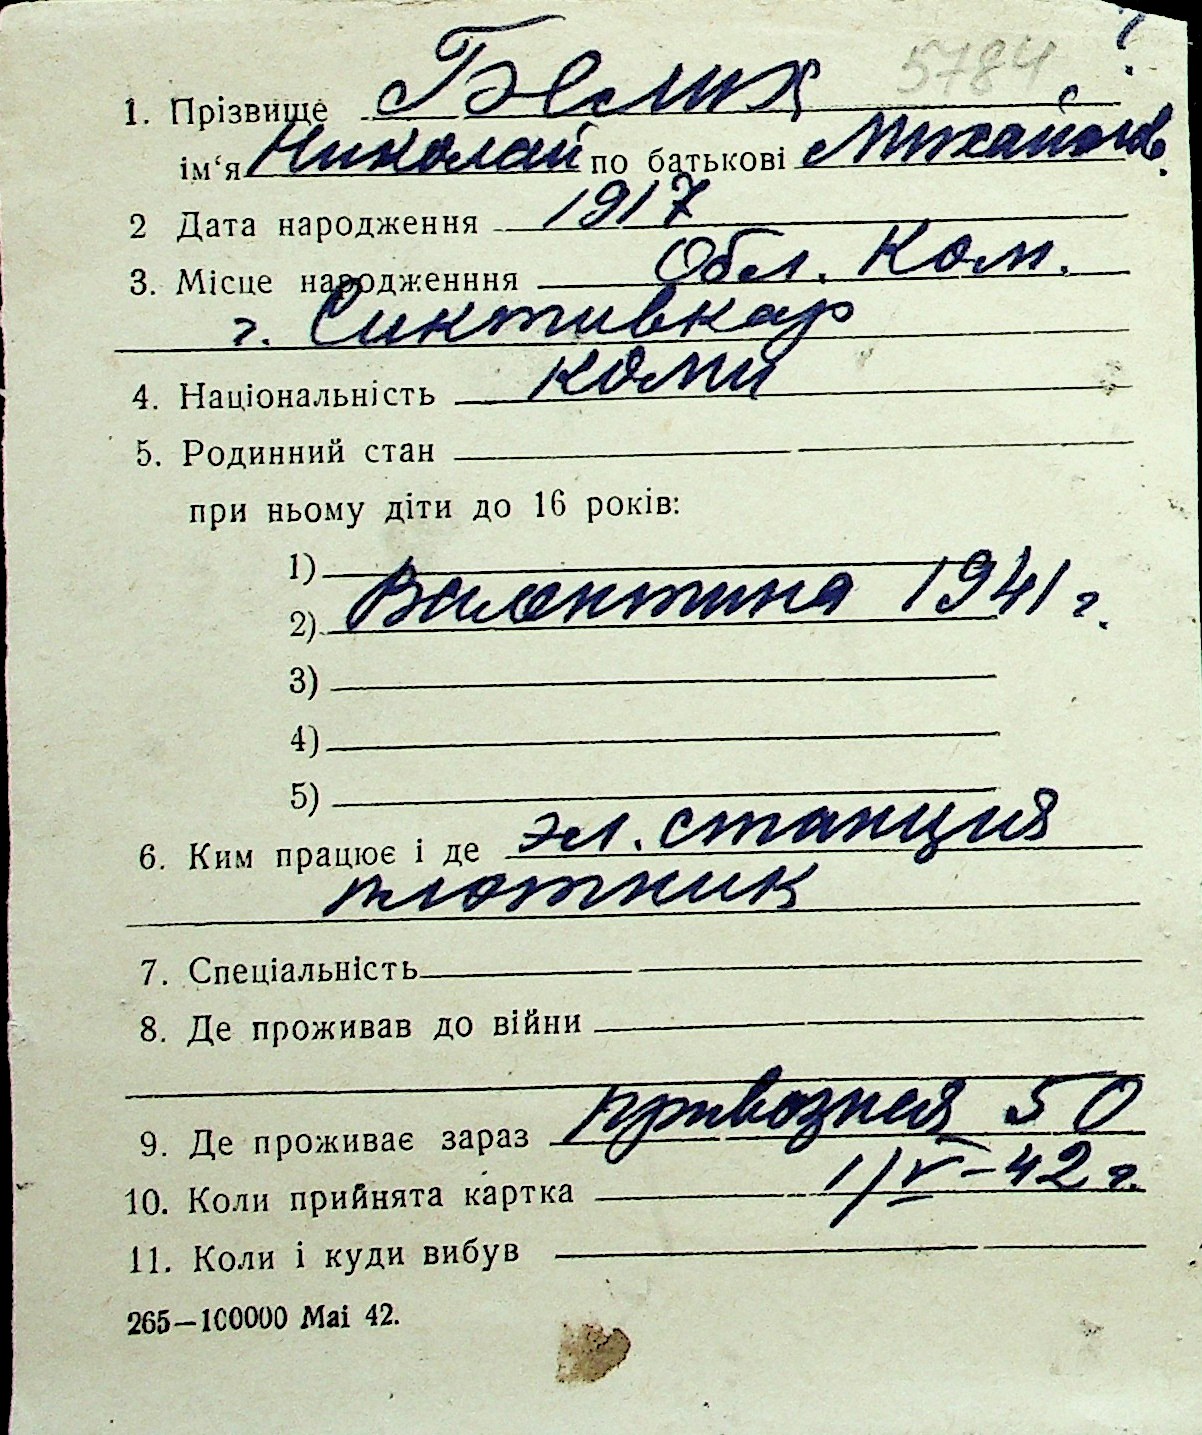 5784
1. Прізвище Белих
ім‘я Николай по батькові Михайлов.
2 Дата народження 1917
3. Місце народженння Обл. Ком.
г. Сиктивкар
4. Національність коми
5. Родинний стан
при ньому діти до 16 років:
1)
2) Валентина 1941 г.
3)
4)
5)
6. Ким працює і де эл. станция
плотник
7. Спеціальність
8. Де проживав до війни
9. Де проживає зараз Привозная 50
10. Коли прийнята картка 1/V-42 г.
11. Коли і куди вибув
265—100000 Mai 42.